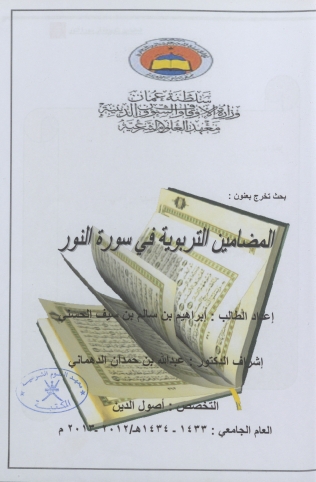 سلطنة عمان
وزارة الأوقاف والشئون الدينية
معهد العلوم الشرعية
بحث تخرج بعنوان :
المضامين التربوية في سورة النور
إعداد الطالب : إبراهيم بن سالم بن سيف
إشراف الدكتور : عبدالله بن حمدان الدهماني
التخصص : أصول الدين
العام الجامعي : ١٤٣٣ - ١٤٣٤هـ/٢٠١٢-٢٠١٣ م